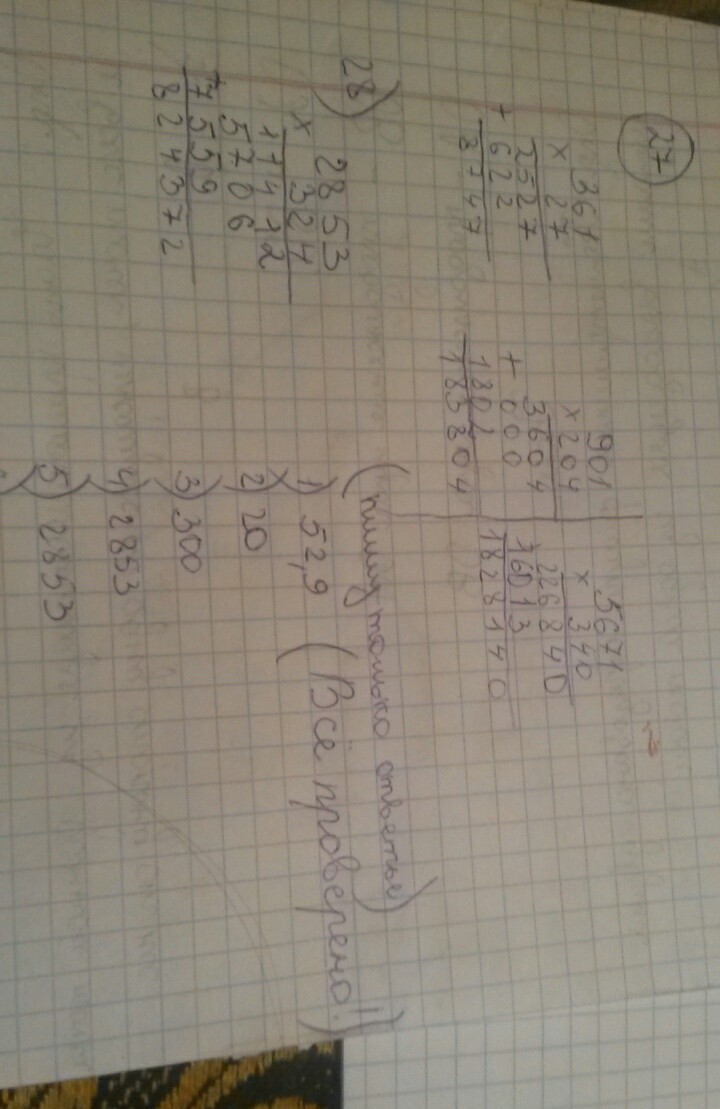 27
361
× 27
2527
+ 622
8747
901
× 204
3604
+ 000
1802
183804
5671
× 340
226840
17013
1828140
28) 2853
× 324
11412
5706
+ 7559
824372
(пишу только ответы)
1) 52,9 (Всё проверено!)
2) 20
3) 300
4) 2853
5) 2853